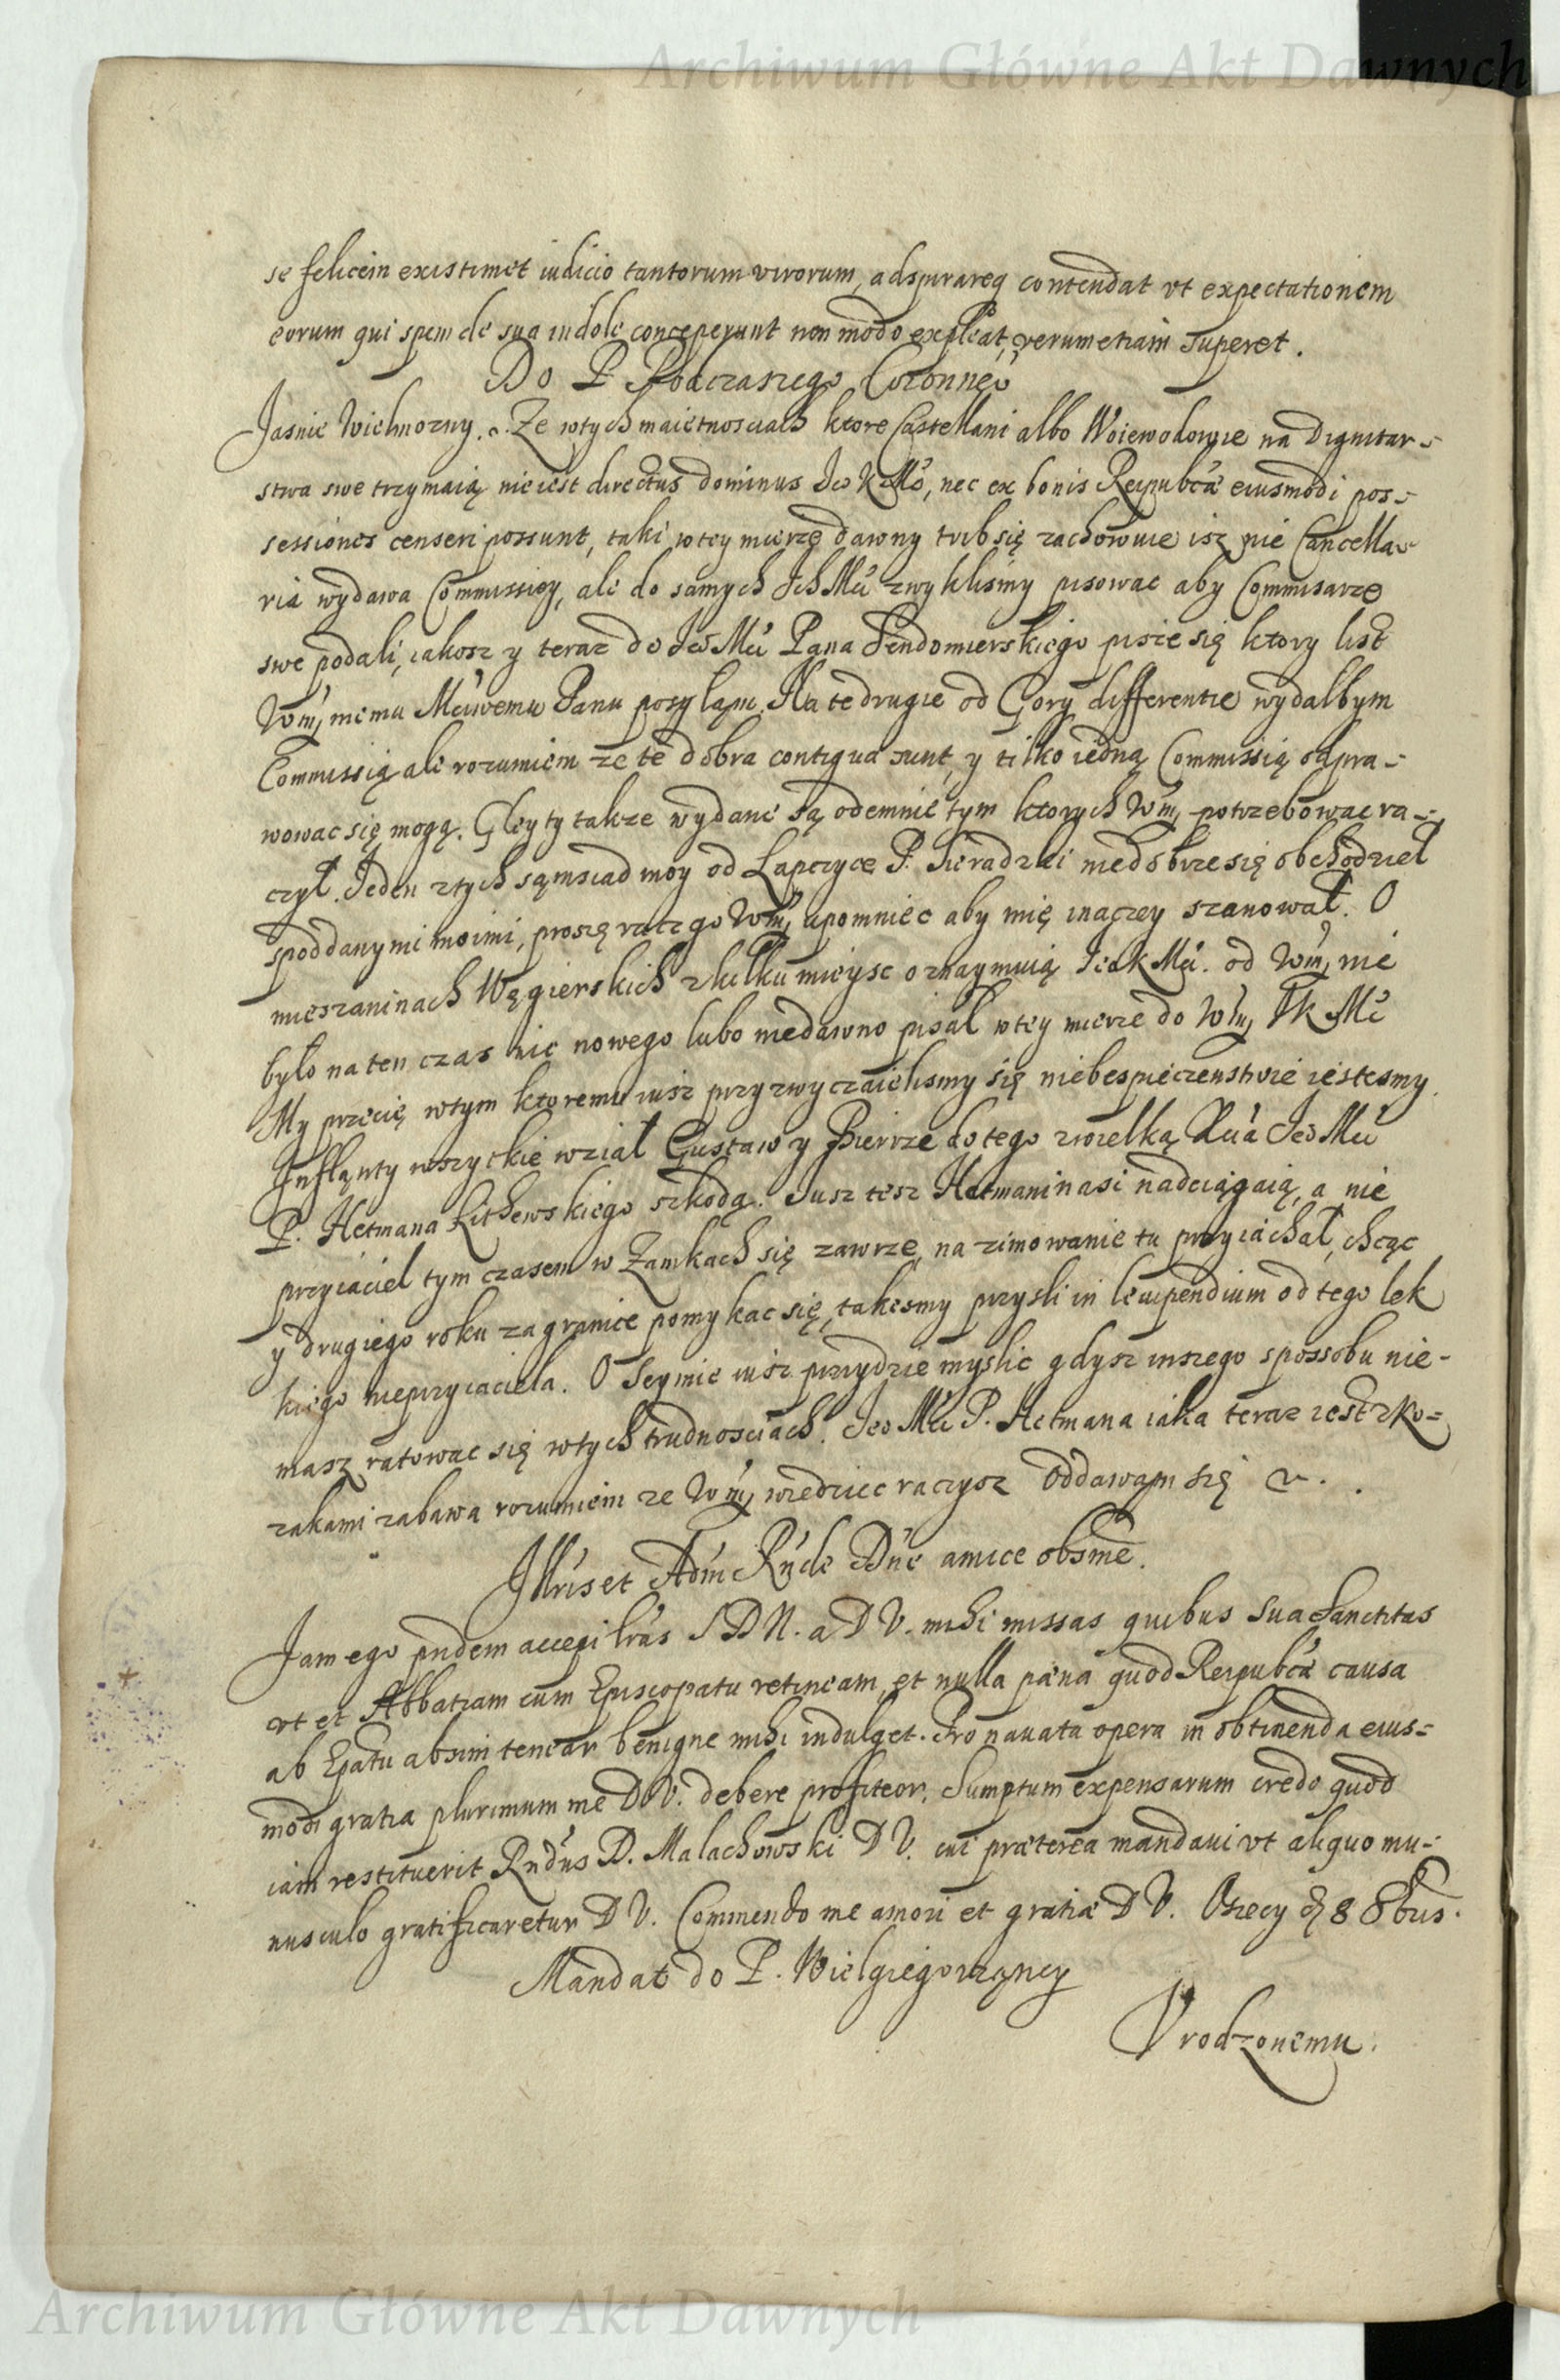 Archiwum Główne Akt Dawnych
se felicem existimet iudicio tantorum virorum, adspirareq contendat vt expectationem
eorum qui spem de sua indole conceperunt non modo expleat, verumetiam superet.
Do P. Podczaszego Coronneo
Jasnie Wielmozny. Ze wtych maietnosciach ktore Castellani albo Woiewodowie na Dignitar-
stwa swe trzymaią nie iest directus dominus Jeo K Mć, nec ex bonis Reipubcæ eiusmodi pos-
sessiones censeri possunt, taki wtey mierze dawny trib się zachowuie isz nie Cancella-
ria wydawa Commissiey, ale do samych Ich Mci zwyklismy pisowac aby Commisarze
swe podali, iakosz y teraz do Jeo Mci Pana Sendomierskiego pisze się ktory list
Wm, memu Mciwemu Panu posyłąm. Na te drugie od Gory differentie wydalbym
Commissią ale rozumiem ze te dobra contigua sunt, y tilko iedną Commissią odpra-
wowac się mogą. Gleyty takze wydane są odemnie tym ktorych Wm, potrzebowac ra-
czył. Jeden ztych sąmsiad moy od Lapczyce P. Sieradzki niedobrze się obchodzieł
spoddanymi moimi, proszę racz go Wm, upomniec aby mię inaczey szanował. O
mieszaninach Węgierskich zkilku mieysc oznaymuią Jeo K Mci. od Wm, nie
było na ten czas nic nowego lubo niedawno pisał wtey mierze do Wm, JK Mć
My przecię wtym ktoremu iusz przyzwyczailismy się niebespieczenstwie iestesmy.
Inflanty wszytkie wziął Gustaw y Bierze do tego zwielką Xcia Jeo Mci
P. Hetmana Lithewskiego szkodą. Iusz tesz Hetmani nasi nadciągaią, a nie
przyiaciel tym czasem w Zamkach się zawrze, na zimowanie tu przyiachał, chcąc
y drugiego roku za granice pomykac się, takesmy przysli in lempendium od tego lek
kiego nieprzyiaciela. O Seymie iusz przydzie myslic gdysz inszego spossobu nie-
masz ratowac się wtych trudnosciach. Jeo Mci P. Hetmana iaka teraz iest zko-
zakami zabawa rozumiem ze Wm, wiedziec raczysz Oddawam się &.
Illris et Adm Rnde Dne amice obsme.
Jam ego pridem accepi lras S D N. a D V. mihi missas quibus sua Sanctitas
vt et Abbatiam cum Episcopatu retineam, et nulla pæna quod Reipubcæ causa
ab Epatu absim tenear benigne mihi indulget. Pro nauata opera in obtinenda eius-
modi gratia plurimum me D V. debere profiteor. Sumptum expensarum credo quod
iam restituerit Rndus D. Malachowski D V. cui præterea mandaui vt aliquo mu-
nusculo gratificaretur D V. Commendo me amori et gratiæ D V. d 8 8bris.
Mandat do P. Wielgiegorząncy
Vrodzonemu.
Archiwum Główne Akt Dawnych